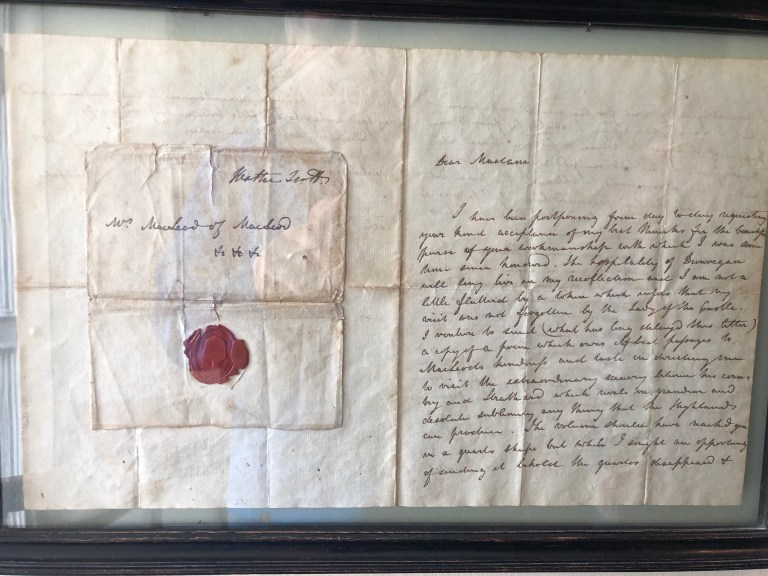 Walter Scott
Mrs Macleod of Macleod
&c &c &c
Dear Madam
I have been postponing from day to day requesting
your kind acceptance of my best thanks for the beautiful
purse of your workmanship with which I was some
time since honourd. The hospitality of Dunvegan
will long live in my recollection and I am not a
little flatterd by a token which infers that my
visit was not forgotten by the Lady of the Castle.
I venture to send (what has long delayd this letter)
a copy of a poem which owes its best passages to
Macleods kindness and taste in directing me
to visit the extraordinary scenery between his coun-
try and Strathaird which rivals in grandeur and
desolate sublimity any thing that the Highlands
can produce. The volume should have reachd you
in a quarto shape but while I sought an opportunity
of sending it behold the quartos disappeard &